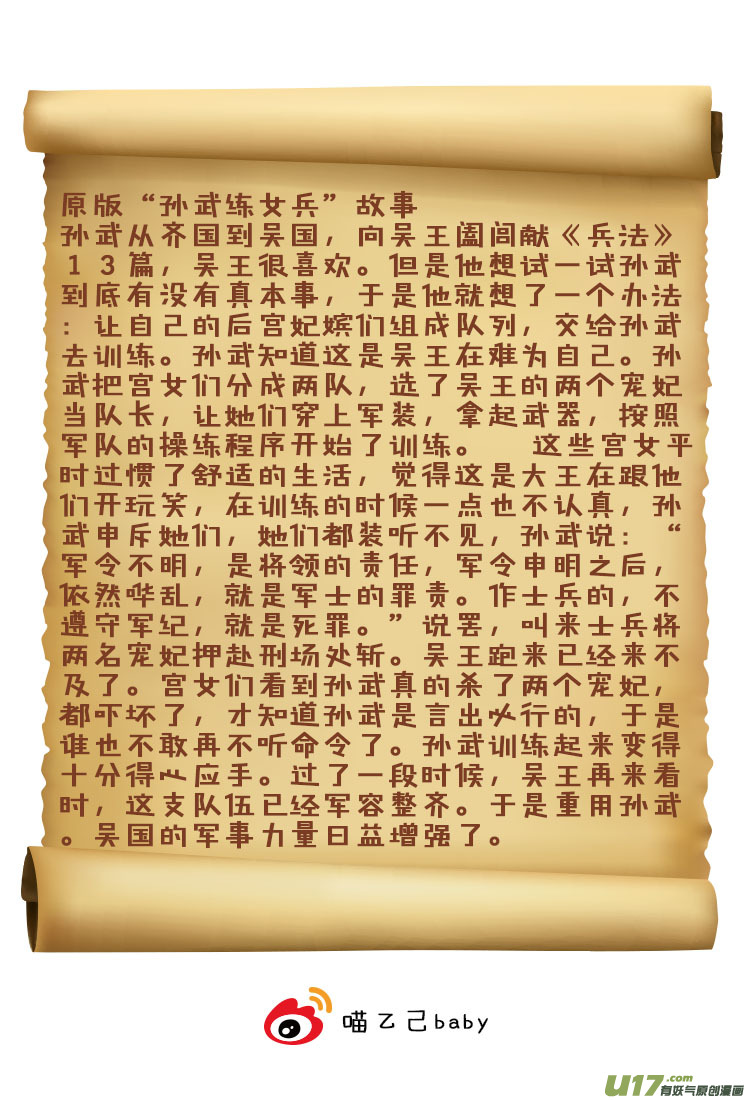 原版“孙武练女兵”故事
孙武从齐国到吴国，向吴王阖闾献《兵法》
13篇，吴王很喜欢。但是他想试一试孙武
到底有没有真本事，于是他就想了一个办法
：让自己的后宫妃嫔们组成队列，交给孙武
去训练。孙武知道这是吴王在难为自己。孙
武把宫女们分成两队，选了吴王的两个宠妃
当队长，让她们穿上军装，拿起武器，按照
军队的操练程序开始了训练。 这些宫女平
时过惯了舒适的生活，觉得这是大王在跟他
们开玩笑，在训练的时候一点也不认真，孙
武申斥她们，她们都装听不见，孙武说：“
军令不明，是将领的责任，军令申明之后，
依然哗乱，就是军士的罪责。作士兵的，不
遵守军纪，就是死罪。”说罢，叫来士兵将
两名宠妃押赴刑场处斩。吴王跑来已经来不
及了。宫女们看到孙武真的杀了两个宠妃，
都吓坏了，才知道孙武是言出必行的，于是
谁也不敢再不听命令了。孙武训练起来变得
十分得心应手。过了一段时候，吴王再来看
时，这支队伍已经军容整齐。于是重用孙武
。吴国的军事力量日益增强了。
喵乙己baby
U17.com
有妖气原创漫画